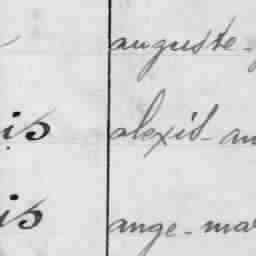 auguste-
is alexis-an
is ange-mar